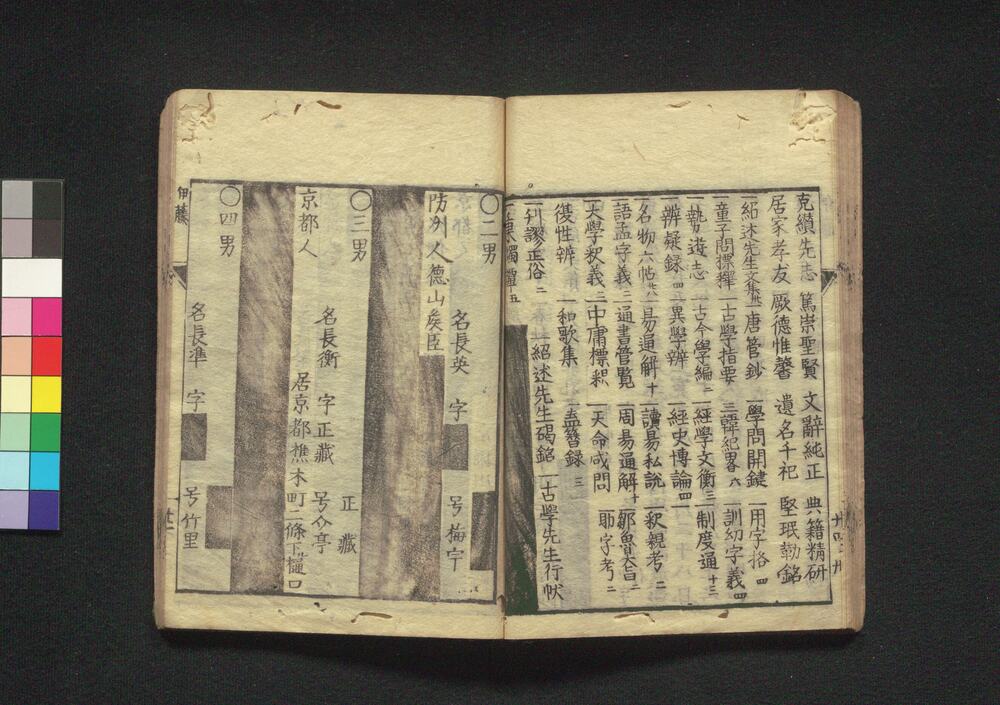 克纘先志 篤崇聖賢 文辭純正 典籍精研
居家孝友 厥德惟馨 遺名千祀 堅珉勒銘
紹述先生文集 一唐管鈔 一學問開鍵 一用字格 四
童子問標釋 一古學指要 三韓紀畧 六 一訓幼字義 四
一勢遊志 一古今學編 二 一經學文衡 三 一制度通 十三
辨疑録 四 一異學辨 一經史博論 四
名物六帖 一易通解 十 一讀易私説 一釈親考 二
語孟字義 二 一通書管覧 一周易通解 十 一鄒魯大旨 二
大學釈義 二 一中庸標釈 一天命或問 一助字考 二
復性辨 一和歌集 一盍簪録 三
一刊謬正俗 二 一紹述先生碣銘 一古學先生行状
一東涯譚 五
〇二男 名長英 字 号梅宇
防州人德山矦臣
〇三男 名長衡 字正藏 号介亭 正藏
京都人 居京都樵木町二條下樋口
〇四男 名長準 字 号竹里
伊藤